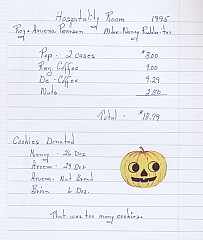 Hospitality Room 1995
Roy + Arvema Pearson Mike + Nancy
Pop - 2 Cases $3.00
Reg. Coffee 4.00
De-Coffee 9.29
Nuts 2.50
Total - $18.79
Cookies Donated
Nancy - 26 Doz
Arvema - 29 Doz
Arvema - Nut Bread
Brian 6 Doz.
That was too many cookies.